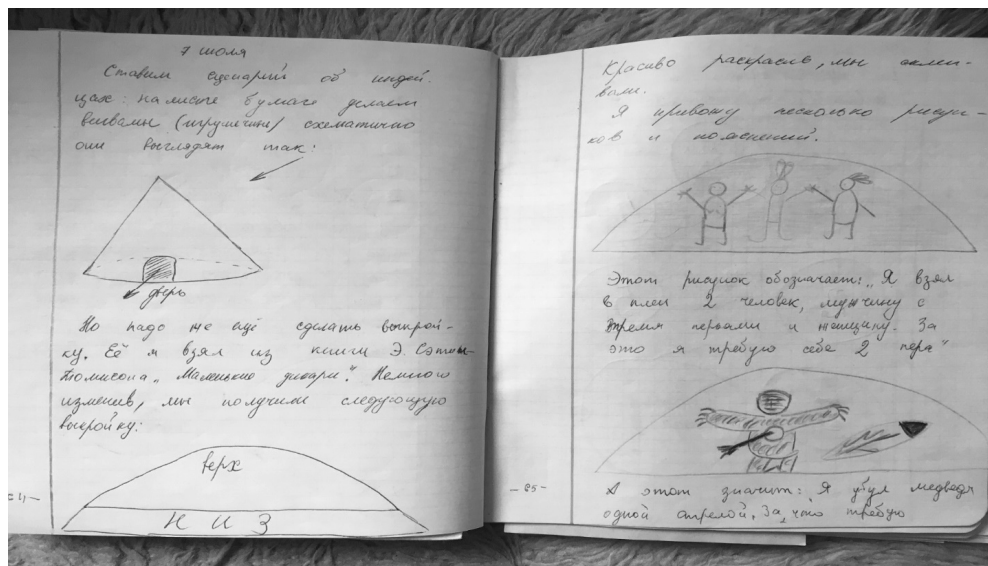 7 июля
Ставим сценарий об индей-
цах: на листе бумаги делаем
вигвамы (игрушечные) схематично
они выглядят так:
дверь
Но надо же ещё сделать выкрой-
ку. Её я взял из книги Э. Сэтон-
Томпсона „Маленькие дикари“. Немного
изменив, мы получили следующую
выкройку:
верх
НИЗ
64 –
Красиво раскрасив, мы склеи-
вали.
Я привожу несколько рисун-
ков и пояснений.
Этот рисунок обозначает: „Я взял
в плен 2 человек, мужчину с
тремя перьями и женщину. За
это я требую себе 2 пера“
– 65 –
А этот значит: „Я убил медведя
одной стрелой. За что требую